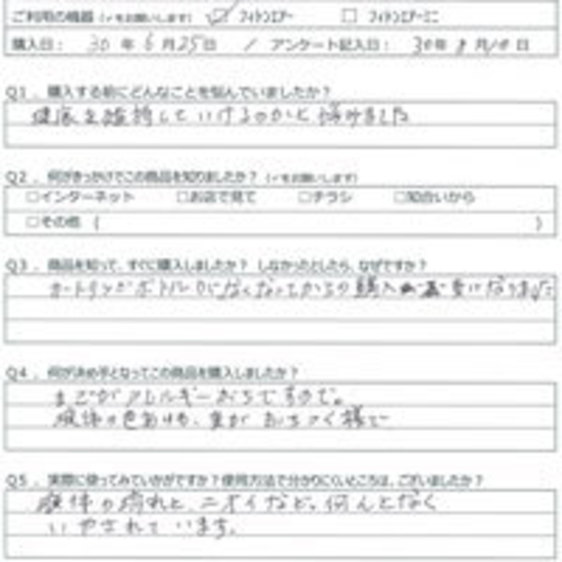 ご利用の機器（✓をお願いします） ☑ フィトンエアー □ フィトンエアーミニ
購入日： 30 年 6月25日 ／ アンケート記入日： 30年 8月10日
Q1．購入する前にどんなことを悩んでいましたか？
健康を維持していけるのかと悩みました
Q2．何がきっかけでこの商品を知りましたか？（✓をお願いします）
□インターネット □お店で見て □チラシ □知合いから
□その他（ ）
Q3．商品を知って、すぐに購入しましたか？ しなかったとしたら、なぜですか？
カートリッジボトルが なくなってからの購入が 重荷になりました
Q4．何が決め手となってこの商品を購入しましたか？
まごがアレルギーおちですので。
液体の色あいも、気がおちつく様で
Q5．実際に使ってみていかがですか？使用方法で分かりにくいところは、ございましたか？
液体の流れと、ニオイなど。何んとなく
いやされています。